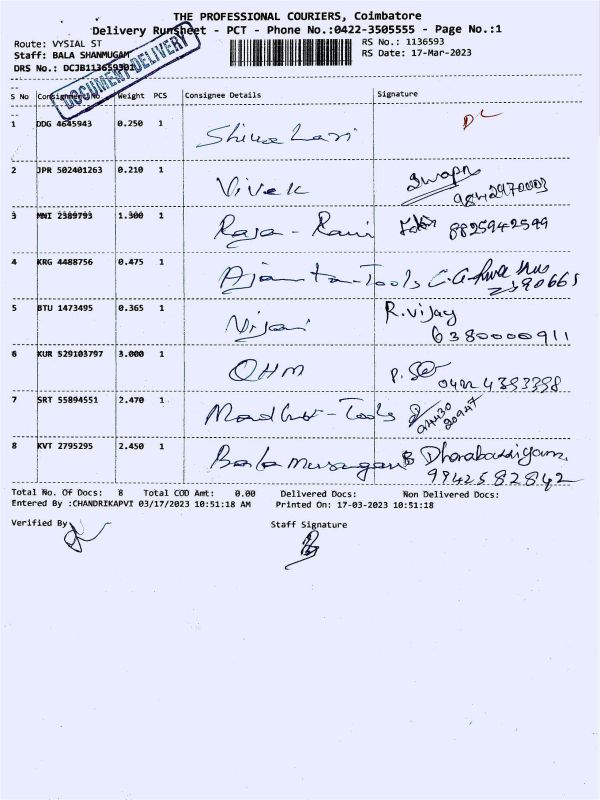 THE PROFESSIONAL COURIERS, Coimbatore
Delivery Runsheet - PCT - Phone No.:0422-3505555 - Page No.:1
Route: VYSIAL ST
RS No.: 1136593
Staff: BALA SHANMUGAM
RS Date: 17-Mar-2023
DRS No.: DCJB1136593B1
DOCUMENT DELIVERY
S No Consignment No Weight PCS Consignee Details Signature
1 DDG 4645943 0.250 1
DL
2 JPR 502401263 0.210 1 Vivek
9842970003
3 MNI 2389793 1.300 1 Raja - Rani 8825942599
4 KRG 4488756 0.475 1 Ajanta - Tools
2390665
5 BTU 1473495 0.365 1 R.vijay
6380000911
6 KUR 529103797 3.000 1 OHM
0422 4393398
7 SRT 55894551 2.470 1 Tools
8 KVT 2795295 2.450 1 Balamurugan
9942582842
Total No. Of Docs: 8 Total COD Amt: 0.00 Delivered Docs: Non Delivered Docs:
Entered By :CHANDRIKAPVI 03/17/2023 10:51:18 AM Printed On: 17-03-2023 10:51:18
Verified By
Staff Signature